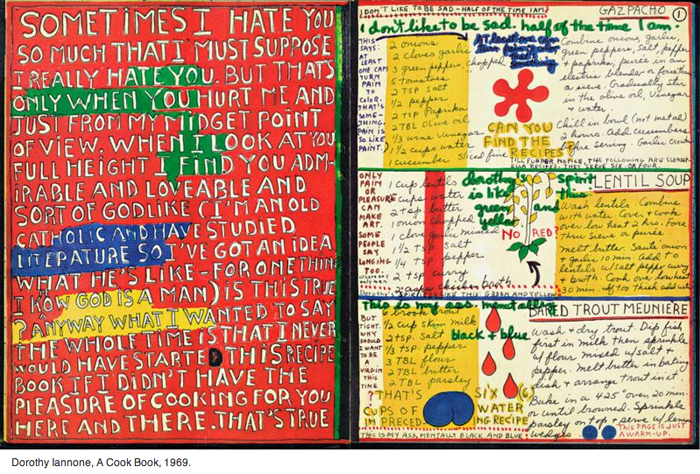 SOMETIMES I HATE YOU
SO MUCH THAT I MUST SUPPOSE
I REALLY HATE YOU. BUT THAT'S
ONLY WHEN YOU HURT ME AND
JUST FROM MY MIDGET POINT
OF VIEW. WHEN I LOOK AT YOU
FULL HEIGHT I FIND YOU ADM-
IRABLE AND LOVEABLE AND
SORT OF GODLIKE (I'M AN OLD
CATHOLIC AND HAVE STUDIED
LITERATURE SO I'VE GOT AN IDEA
WHAT HE'S LIKE - FOR ONE THING
I KNOW GOD IS A MAN) IS THIS TRUE
? ANYWAY WHAT I WANTED TO SAY
THE WHOLE TIME IS THAT I NEVER
WOULD HAVE STARTED THIS RECIPE
BOOK IF I DIDN'T HAVE THE
PLEASURE OF COOKING FOR YOU
HERE AND THERE. THAT'S TRUE
I DON'T LIKE TO BE SAD - HALF THE TIME I AM:
GAZPACHO
1
I don't like to be sad. half of the time I am:
THIS
SAYS:
AT
LEAST
ONE CAN
TURN
PAIN
TO
COLOR.
THAT'S
SOME-
THING.
PAIN IS
SO LIKE
PAINT.
2 onions
2 cloves garlic
3 green peppers, chopped
5 tomatoes
2 TSP salt
1/2 pepper
2 TSP Paprika
2 TBL Olive oil
1/3 wine Vinegar
1 1/2 cups water
1 cucumber sliced fine
At least one can
turn pain to color
that's
something
CAN YOU
FIND THE
RECIPES?
Combine onions, garlic,
green peppers, salt, pepper
+ paprika, puree in an
electric blender or force thru
a sieve. Gradually stir
in the olive oil, Vinegar
+ water.
Chill in bowl (not metal)
2 hours. Add cucumbers
before serving. Garlic
TILL FURTHER NOTICE, THE FOLLOWING ARE
SERVE SIX OR FOUR.
ONLY
PAIN
OR
PLEASURE
CAN
MAKE
ART.
SOME
PEOPLE
SAY
LONGING,
TOO.
1 cup lentils
cups water
2 tsp butter
1 onion chopped
1 clove garlic minced
1 1/2 tsp salt
1/4 tsp pepper
2 tsp curry
broth
dorothy's spirit
is like this
green and
yellow
NO RED?
LENTIL SOUP
Wash lentils. Combine
with water. Cover + cook
over low heat 2 hrs. Force
thru sieve or puree
melt butter. Saute onion
+ garlic 10 min. Add to
lentils w/ salt pepper curry
+ broth. Cook over low heat
30 min. If too thick add
THIS GREEN AND YELLOW
This is my ass. mentally
black + blue
BUT
TIGHT.
WHY
SHOULD
I WANT
TO BE
A
VIRGIN
THIS
TIME
?
brook trout
1/2 cup skim milk
2 tsp salt
1/2 tsp. pepper
3 TBL flour
2 TBL butter
2 TBL parsley
THAT'S SIX (6)
CUPS OF WATER
IN PRECEDING RECIPE
BAKED TROUT MEUNIERE
Wash + dry trout. Dip fish
first in milk then sprinkle
w/ flour mixed w/ salt +
pepper. melt butter in baking
dish + arrange trout in it
Bake in a 425° oven 20 min.
or until browned. Sprinkle
parsley on top + serve w/ lemon
wedges
THIS PAGE IS JUST
A WARM-UP.
THIS IS MY ASS, MENTALLY BLACK AND BLUE
Dorothy Iannone, A Cook Book, 1969.